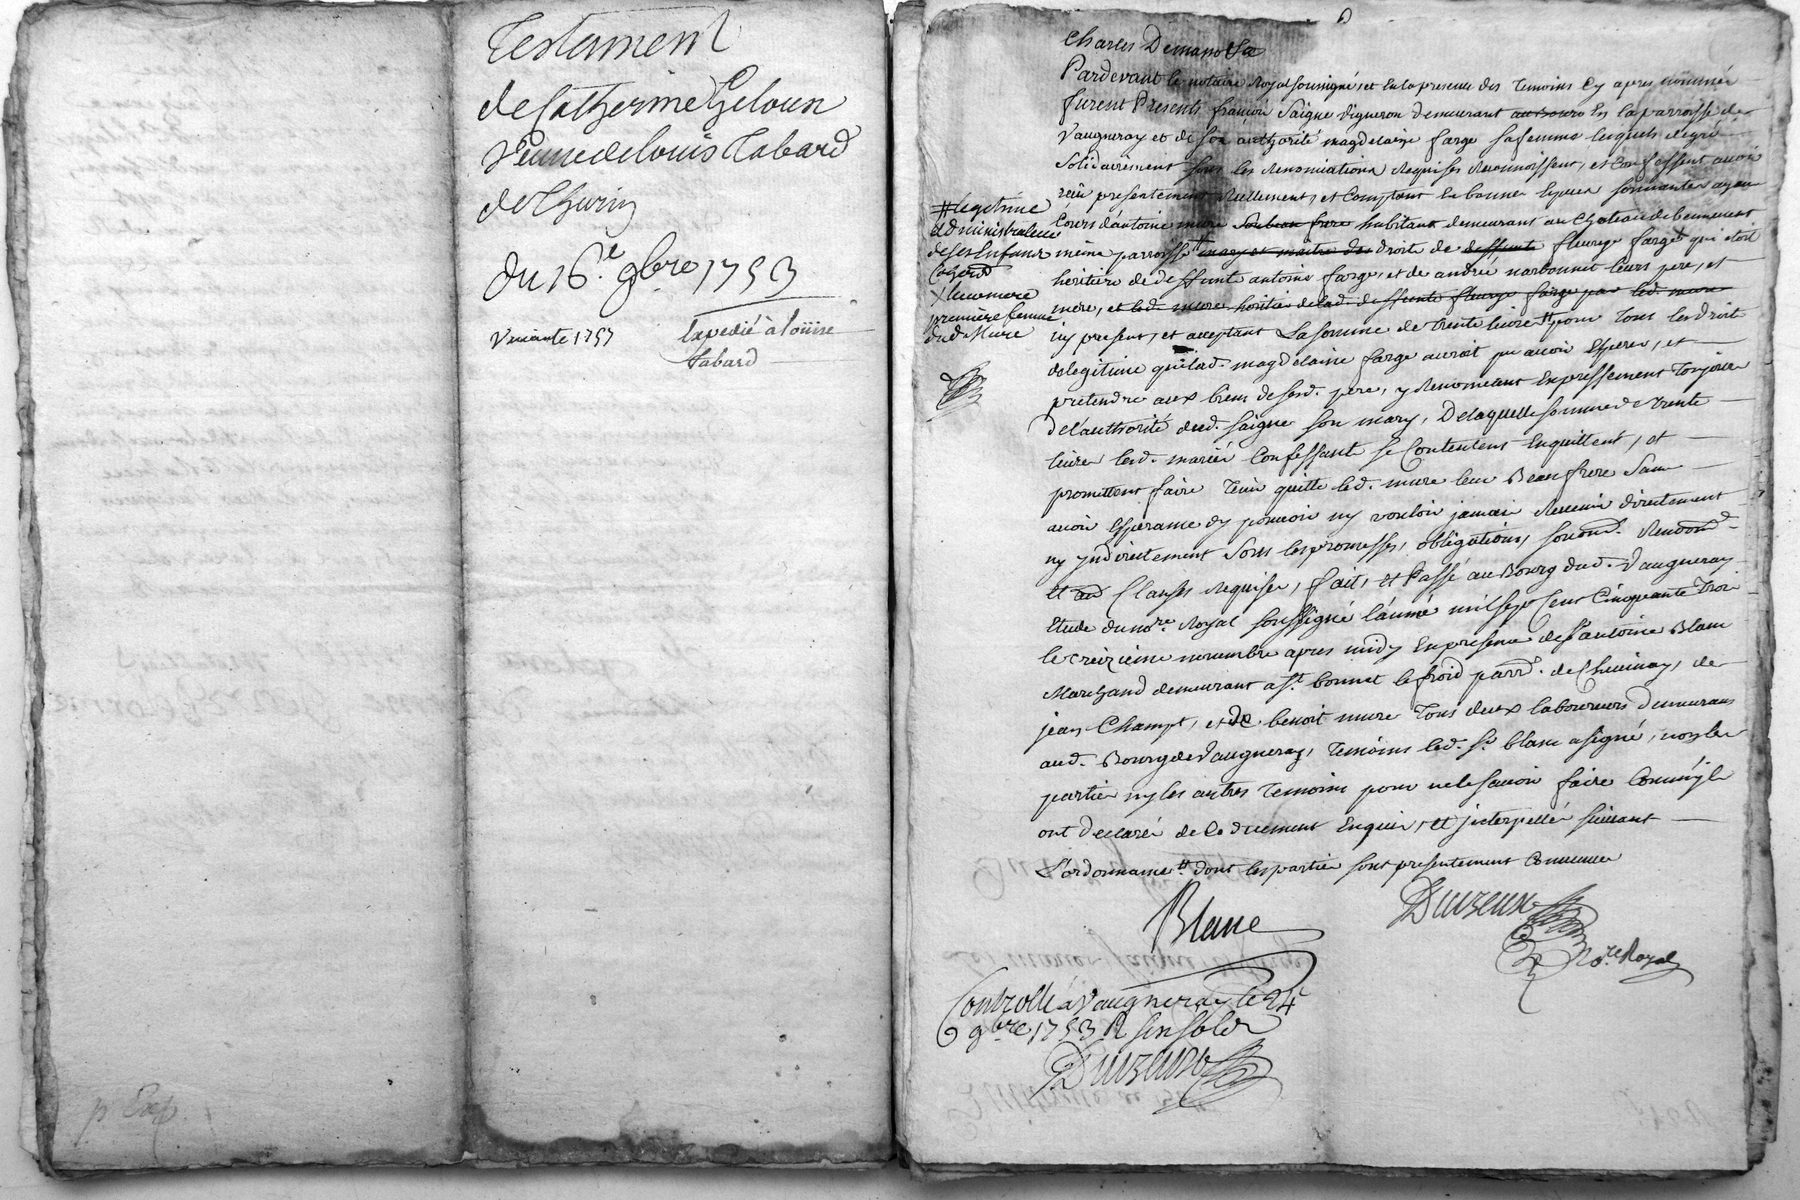 Testament
de Catherine Geloun
Veuve de louis Tabard
de Thurin
du 16.e 9bre 1753
Vacante 1757
Expedié à loüise
Tabard
p Exp.
Charles Demanolle
Pardevant le notaire Royal soussigné, et En la presence des Temoins Cy apres nommés
furent Presents françois Saigne Vigneron demeurant En la parroisse de
Vaugneray et de son authorité magdelaine farge sa femme lesquels de gré
Solidairement sous les Renonciations Requises Reconnoissent, et Confessent avoir
reçû presentement Reellement, et Comptant En bonnes Especes sonnantes ayant
Cours d'antoine mure habitant demeurant au Chateau de benevent
même parroisse # droits de fleurye farge qui etoit
heritiere de deffunts antoine farge, et de andrée narbonnet leurs pere, et
mere, et led. mure heritier de lad. deffunte fleurye farge par led. mure
icy present, et acceptant La somme de trente livres pour Tous les droits
de legitime que lad. magdelaine farge auroit pu avoir Esperer, et
pretendre aux biens de sesd. pere, y Renoncent Expressement Toujours
de l'authorité dud. Saigne son mary, De laquelle somme de trente
livres lesd. mariés Confessants se Contentent En quittent, et
promettent faire Tenir quitte led. mure leur Beau frere Sans
avoir Esperance d'y pouvoir ny vouloir jamais Revenir directement
ny Indirectement Sous les promesses, obligations, soumd. Renond.
et Clauses Requises, fait, et Passé au Bourg dud. Vaugneray
Etude du nore. Royal soussigné l'année mil sept Cent Cinquante Trois
le treizieme novembre apres midy En presence de Sr. antoine Blanc
Marchand demeurant a St. bonnet le froid parrd. de Chevinay, de
jean Champt, et de benoit mure Tous deux laboureurs Demeurans
aud. Bourg de Vaugneray, Temoins led. Sr. blanc a signé, non les
parties ny les autres Temoins pour ne le savoir faire Comme ils
ont declaré de Ce düement Enquis, et interpellés suivant
L'ordonnance dont les parties sont presentement Convenues
#legitime
administrateur
de ses Enfants
leur mere
premiere femme
dud. Mure
Blanc
Duizeux
Nore. Royal
Controllé à Vaugneray le 24
9bre 1753 R six sols
Duizeux